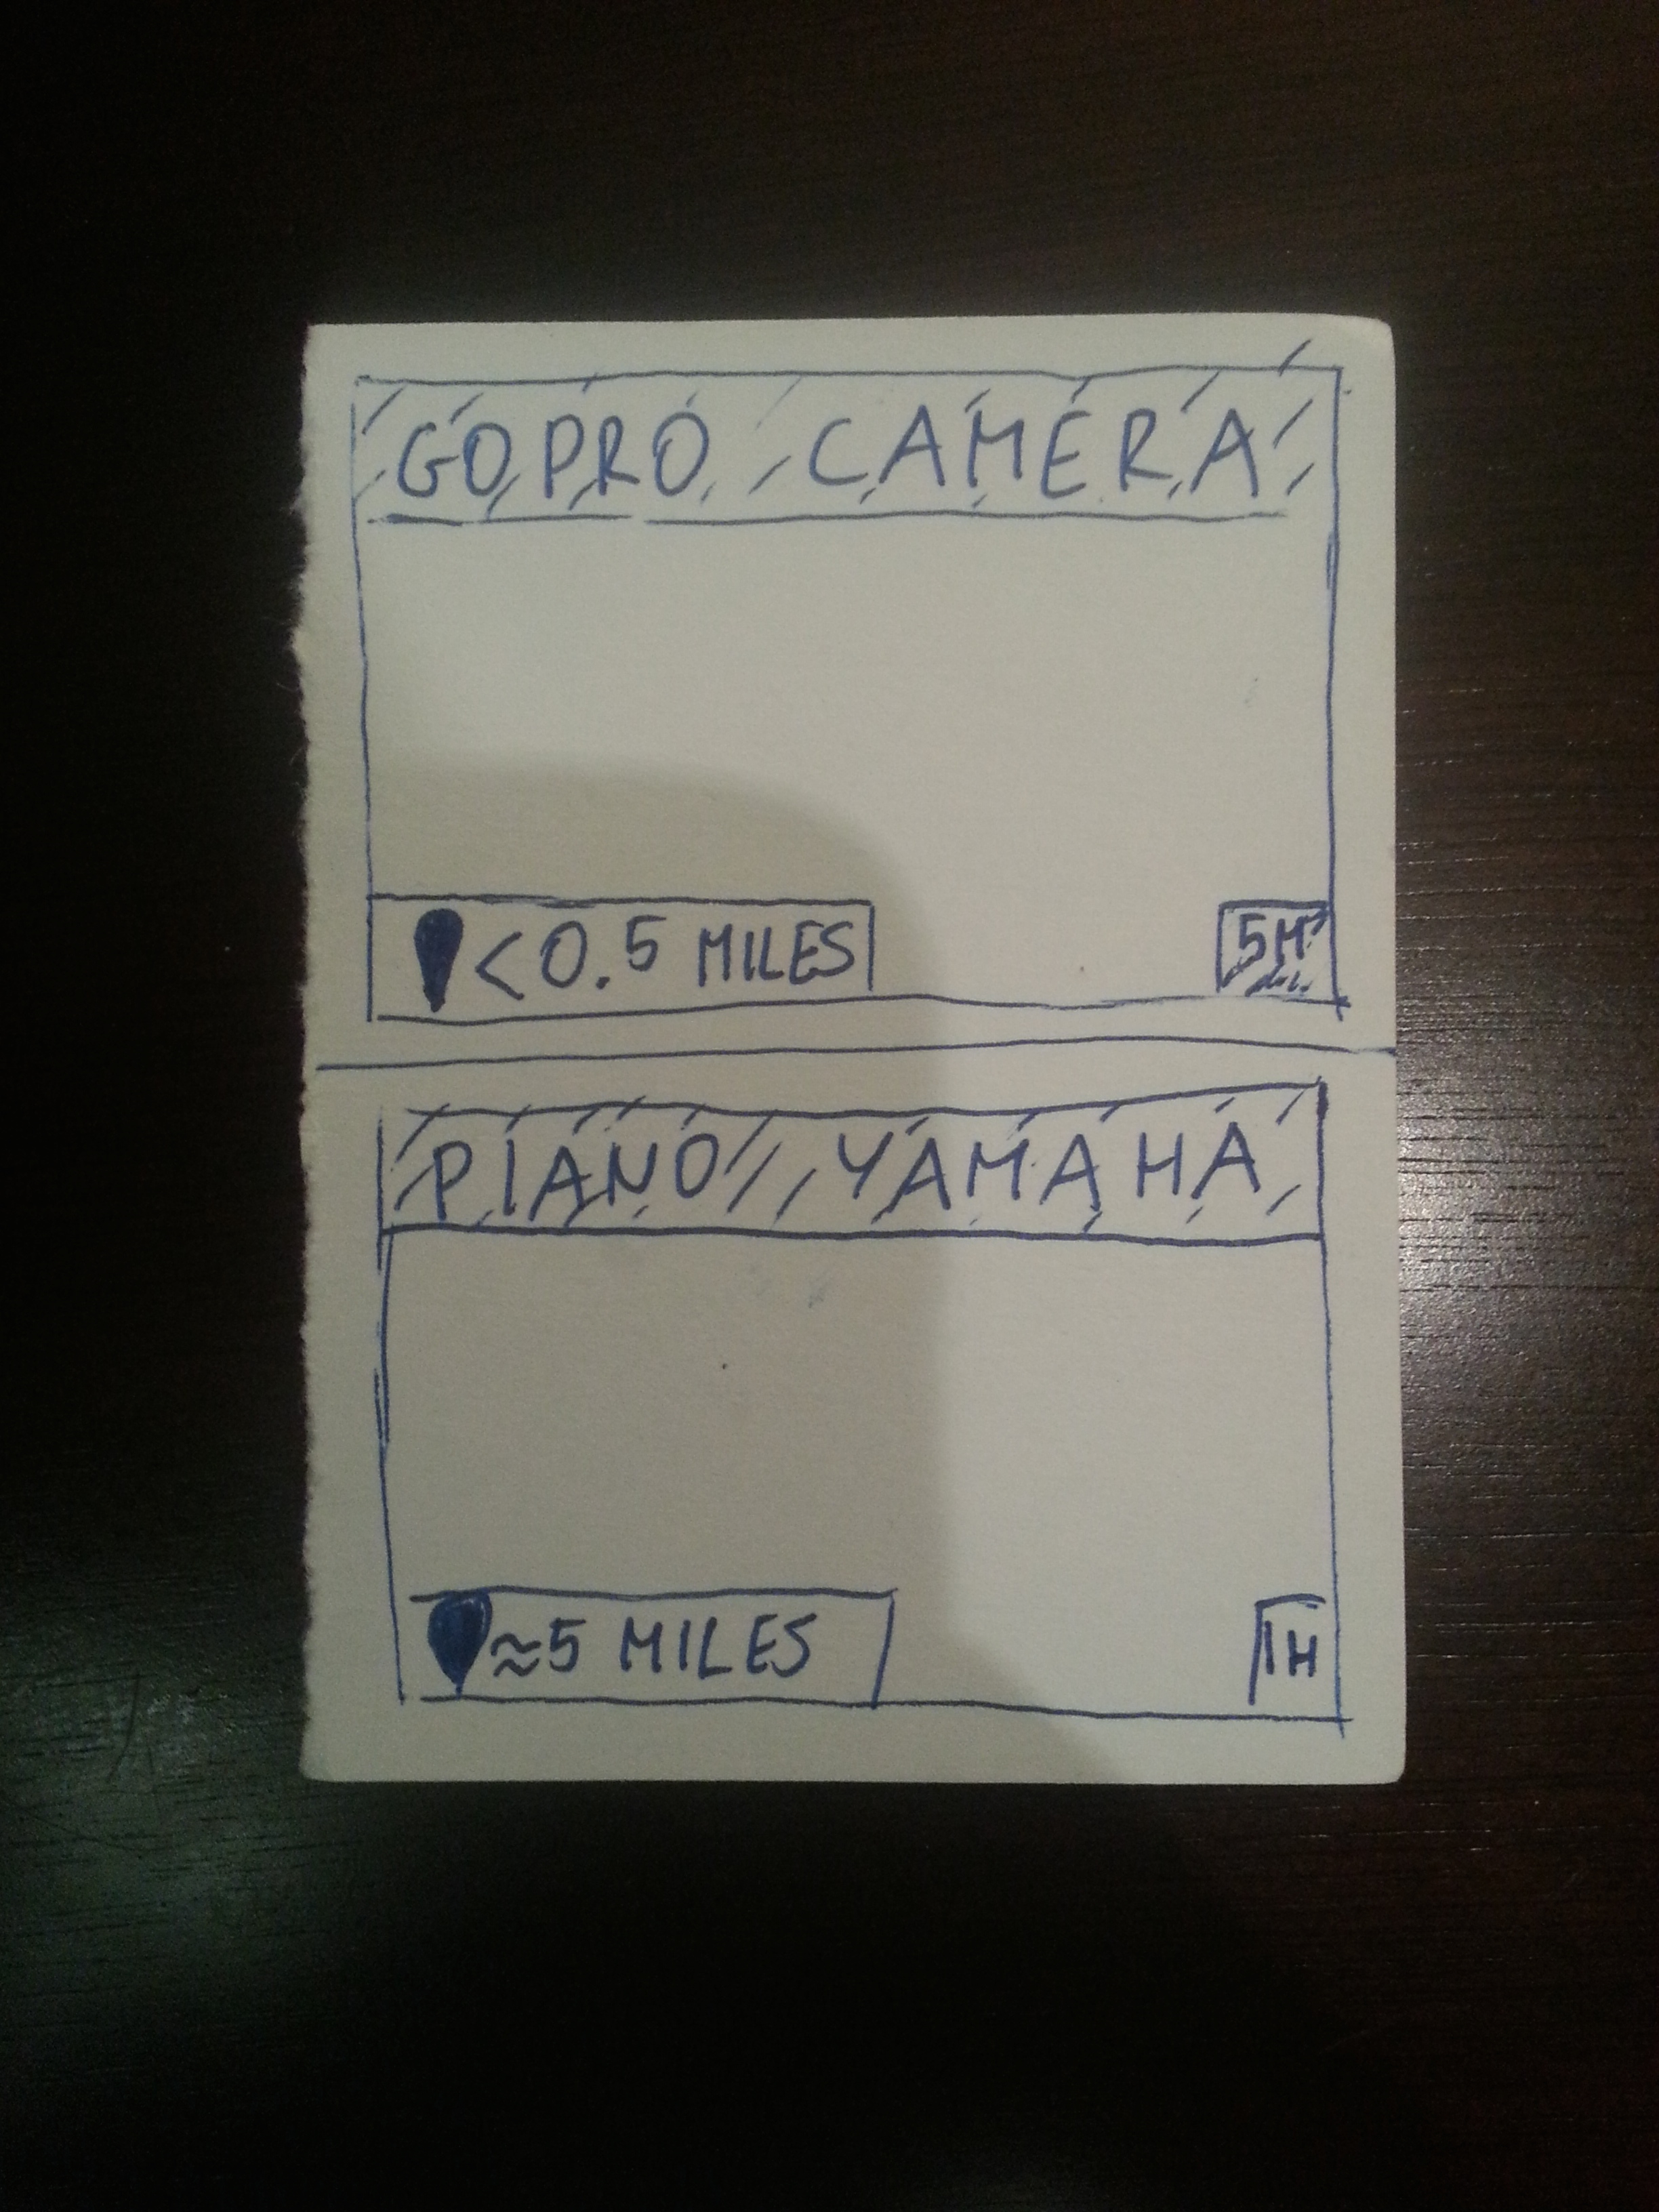 GOPRO CAMERA
<0.5 MILES 5M
PIANO YAMAHA
≈5 MILES 1H